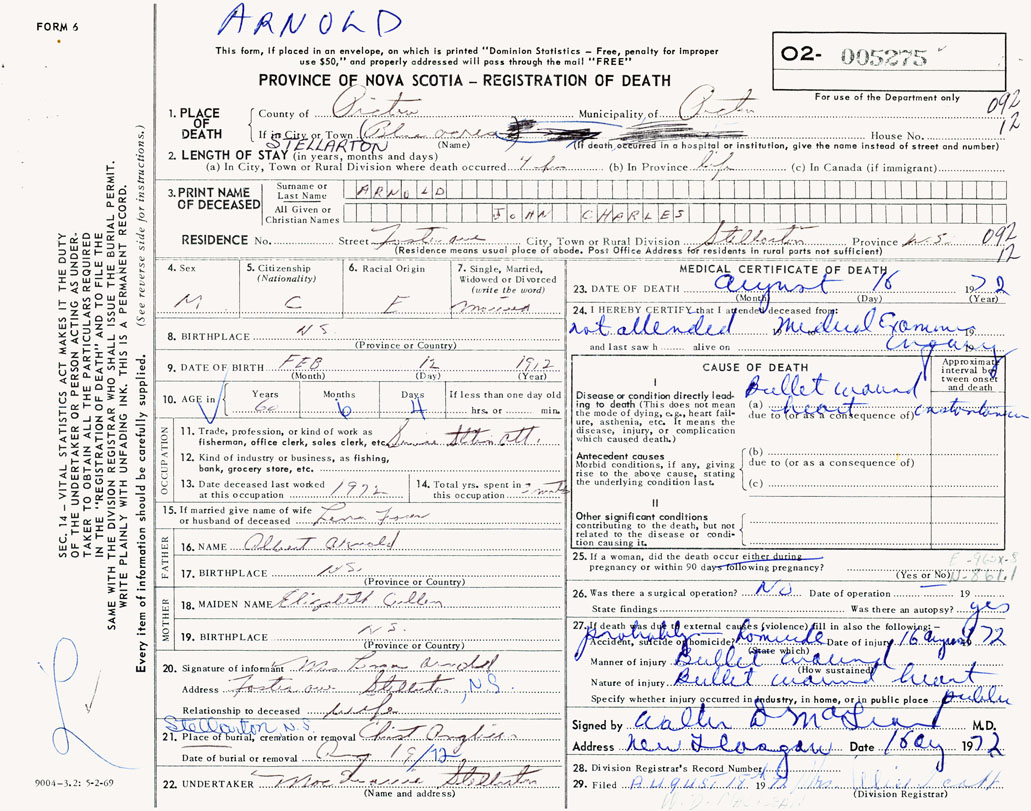 FORM 6
ARNOLD
This form, if placed in an envelope, on which is printed "Dominion Statistics – Free, penalty for improper
use $50," and properly addressed will pass through the mail "FREE"
PROVINCE OF NOVA SCOTIA – REGISTRATION OF DEATH
02- 005275
For use of the Department only
092
12
1. PLACE OF DEATH
County of Pictou Municipality of Pictou
If in City or Town (Blue acres) House No.
STELLARTON (Name) (If death occurred in a hospital or institution, give the name instead of street and number)
2. LENGTH OF STAY (in years, months and days)
(a) In City, Town or Rural Division where death occurred (b) In Province life (c) In Canada (if immigrant)
3. PRINT NAME OF DECEASED
Surname or Last Name ARNOLD
All Given or Christian Names JOHN CHARLES
RESIDENCE No. Street Foster ave City, Town or Rural Division Stellarton Province N.S. 092
12
(Residence means usual place of abode. Post Office Address for residents in rural parts not sufficient)
4. Sex M
5. Citizenship (Nationality) C
6. Racial Origin E
7. Single, Married, Widowed or Divorced (write the word) Married
8. BIRTHPLACE N.S.
(Province or Country)
9. DATE OF BIRTH FEB 12 1912
(Month) (Day) (Year)
10. AGE in Years 60 Months 6 Days 4 If less than one day old hrs. or min.
OCCUPATION
11. Trade, profession, or kind of work as
fisherman, office clerk, sales clerk, etc. Service Station Att.
12. Kind of industry or business, as fishing,
bank, grocery store, etc.
13. Date deceased last worked at this occupation 1972
14. Total yrs. spent in this occupation
15. If married give name of wife
or husband of deceased Lena
FATHER
16. NAME Albert Arnold
17. BIRTHPLACE N.S.
(Province or Country)
MOTHER
18. MAIDEN NAME Elizabeth Cullen
19. BIRTHPLACE N.S.
(Province or Country)
20. Signature of informant Mrs Lena Arnold
Address Foster ave Stellarton, N.S.
Relationship to deceased wife
Stellarton N.S.
21. Place of burial, cremation or removal Christ Anglican
Date of burial or removal Aug 19/72
22. UNDERTAKER Stellarton
(Name and address)
MEDICAL CERTIFICATE OF DEATH
23. DATE OF DEATH August 16 1972
(Month) (Day) (Year)
24. I HEREBY CERTIFY that I attended deceased from:
not attended Medical Examiner 19
and last saw h alive on Enquiry 19
CAUSE OF DEATH
Approximate interval between onset and death
I
Disease or condition directly leading to death (This does not mean the mode of dying, e.g., heart failure, asthenia, etc. It means the disease, injury, or complication which caused death.)
Bullet wound
(a) heart instantaneous
due to (or as a consequence of)
Antecedent causes
Morbid conditions, if any, giving rise to the above cause, stating the underlying condition last.
(b)
due to (or as a consequence of)
(c)
II
Other significant conditions
contributing to the death, but not related to the disease or condition causing it.
25. If a woman, did the death occur either during
pregnancy or within 90 days following pregnancy?
(Yes or No)
26. Was there a surgical operation? No Date of operation 19
State findings Was there an autopsy? yes
27. If death was due to external causes (violence) fill in also the following:–
Accident, suicide or homicide? probably homicide Date of injury 16 august 1972
(State which)
Manner of injury Bullet wound
(How sustained)
Nature of injury Bullet wound heart
Specify whether injury occurred in industry, in home, or in public place public
Signed by Walter D MacLean M.D.
Address New Glasgow Date 18 Aug 1972
28. Division Registrar's Record Number
29. Filed August 18th 1972
(Division Registrar)
SEC. 14 – VITAL STATISTICS ACT MAKES IT THE DUTY
OF THE UNDERTAKER OR PERSON ACTING AS UNDER-
TAKER TO OBTAIN ALL THE PARTICULARS REQUIRED
IN THE "REGISTRATION OF DEATH" AND TO FILE THE
SAME WITH THE DIVISION REGISTRAR WHO SHALL ISSUE THE BURIAL PERMIT.
WRITE PLAINLY WITH UNFADING INK. THIS IS A PERMANENT RECORD.
Every item of information should be carefully supplied. (See reverse side for instructions.)
9004–3.2: 5-2-69